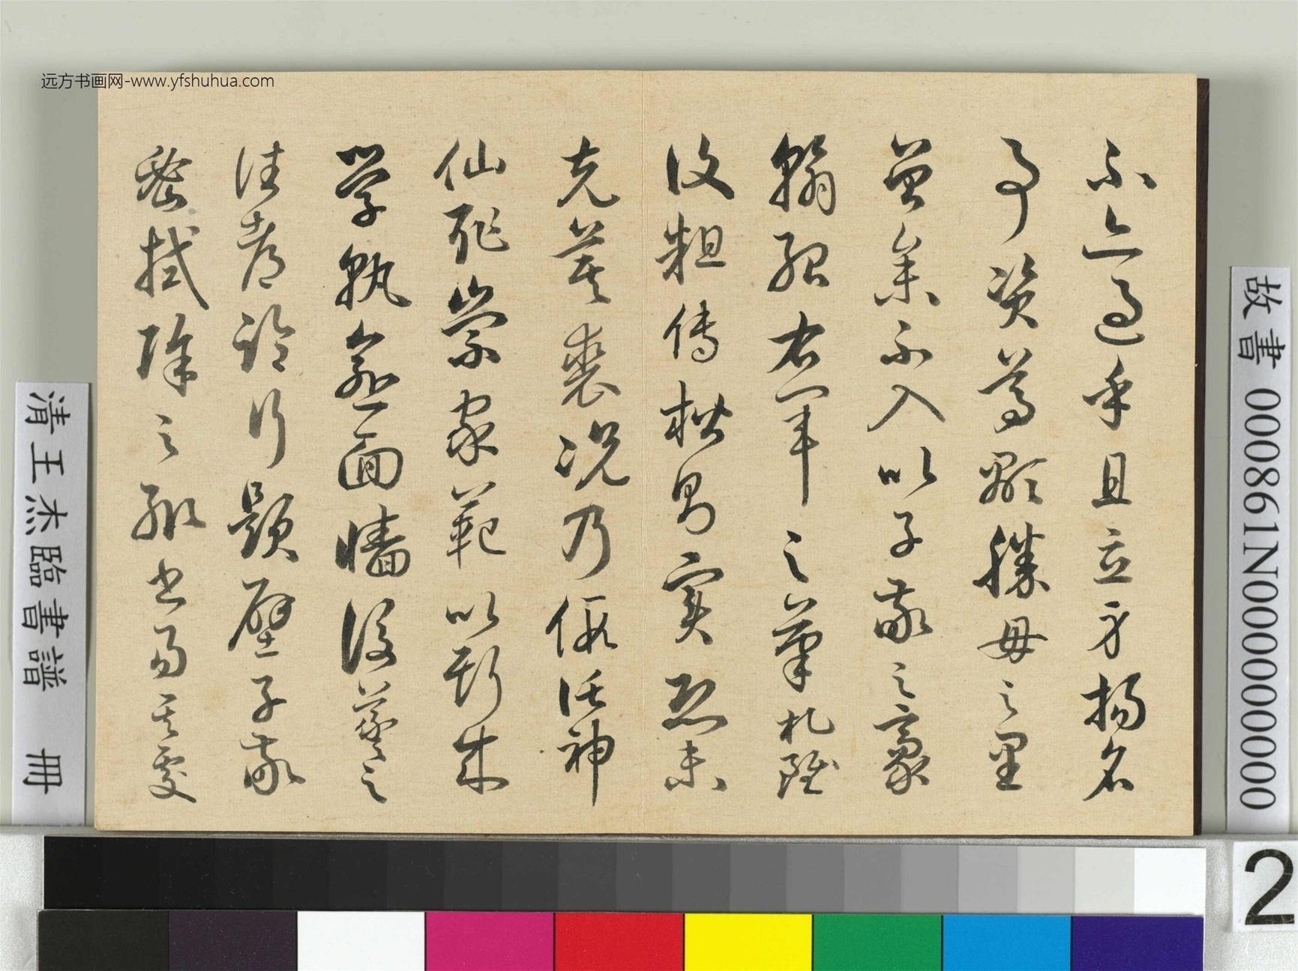 远方书画网-www.yfshuhua.com
不亦過乎且立身揚名
事資尊顯勝母之里
曾參不入以子敬之豪
翰紹右軍之筆札雖
復粗傳楷則實恐未
克箕裘況乃假託神
仙恥崇家範以斯成
學孰愈面墻後羲之
往都臨行題壁子敬
密拭除之輒書易其處
故書 000861N000000000
清王杰臨書譜 冊
2